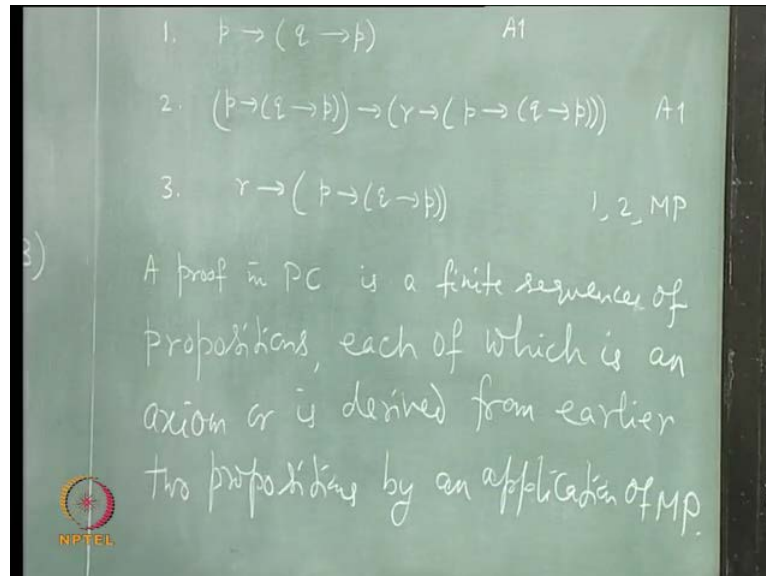 1. p → (q → p) A1
2. (p→(q→p))→(r→(p→(q→p))) A1
3. r→(p→(q→p)) 1, 2, MP
3)
A proof in PC is a finite sequences of
propositions, each of which is an
axiom or is derived from earlier
two propositions by an application of MP.
NPTEL